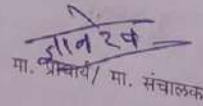 ज्ञानेश्व
मा. प्राचार्य/ मा. संचालक